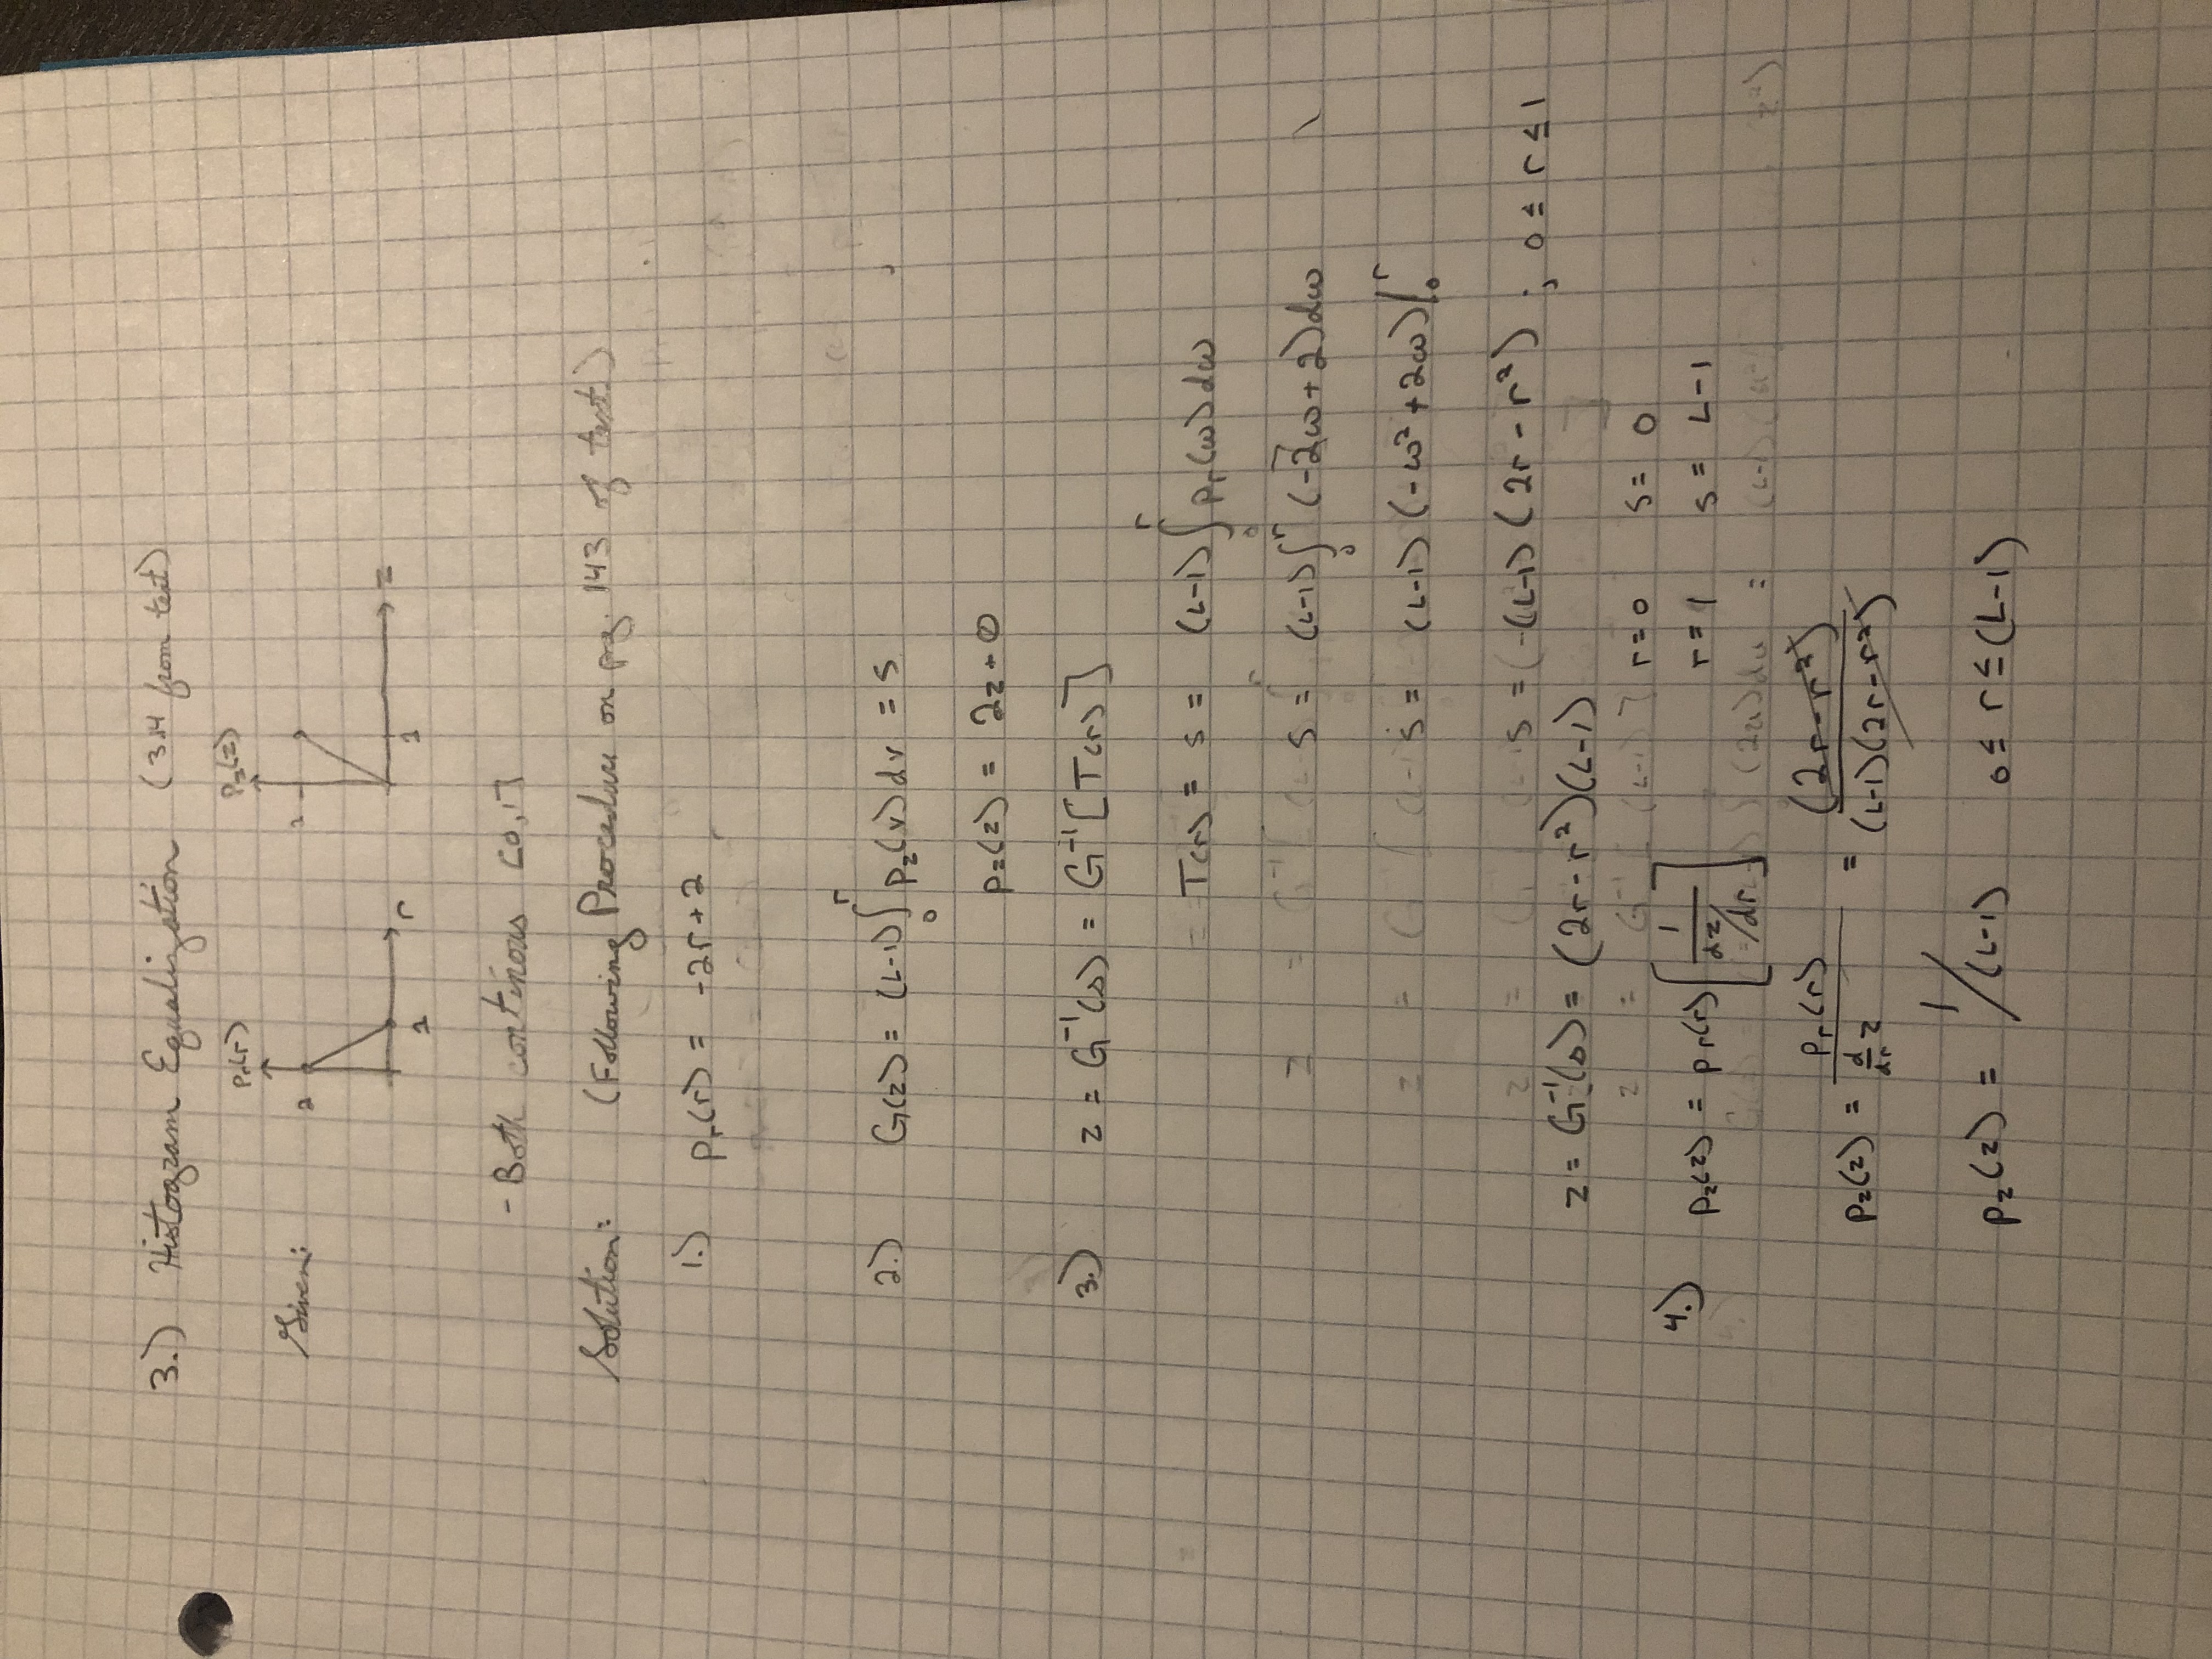 3.) Histogram Equalization (3.14 from text)
pr(r)
pz(z)
Given:
2
2
1
r
1
z
- Both continous [0,1]
Solution: (Following Procedure on pg. 143 of text.)
1.) pr(r) = -2r+2
2.) G(z) = (L-1)∫₀ʳ pz(v)dv = s
pz(z) = 2z+0
3.) z = G⁻¹(s) = G⁻¹[T(r)]
T(r) = s = (L-1)∫₀ʳ pr(ω)dω
s = (L-1)∫₀ʳ (-2ω+2)dω
s = (L-1)(-ω²+2ω)|₀ʳ
s = (L-1)(2r-r²) ; 0 ≤ r ≤ 1
z = G⁻¹(s) = (2r-r²)(L-1)
r=0 s= 0
4.) pz(z) = pr(r)[1/(dz/dr)]
r=1 s= L-1
pz(z) = pr(r)/(d/dr z) = (2r-r²)/((L-1)(2r-r²))
pz(z) = 1/(L-1) 0 ≤ r ≤ (L-1)